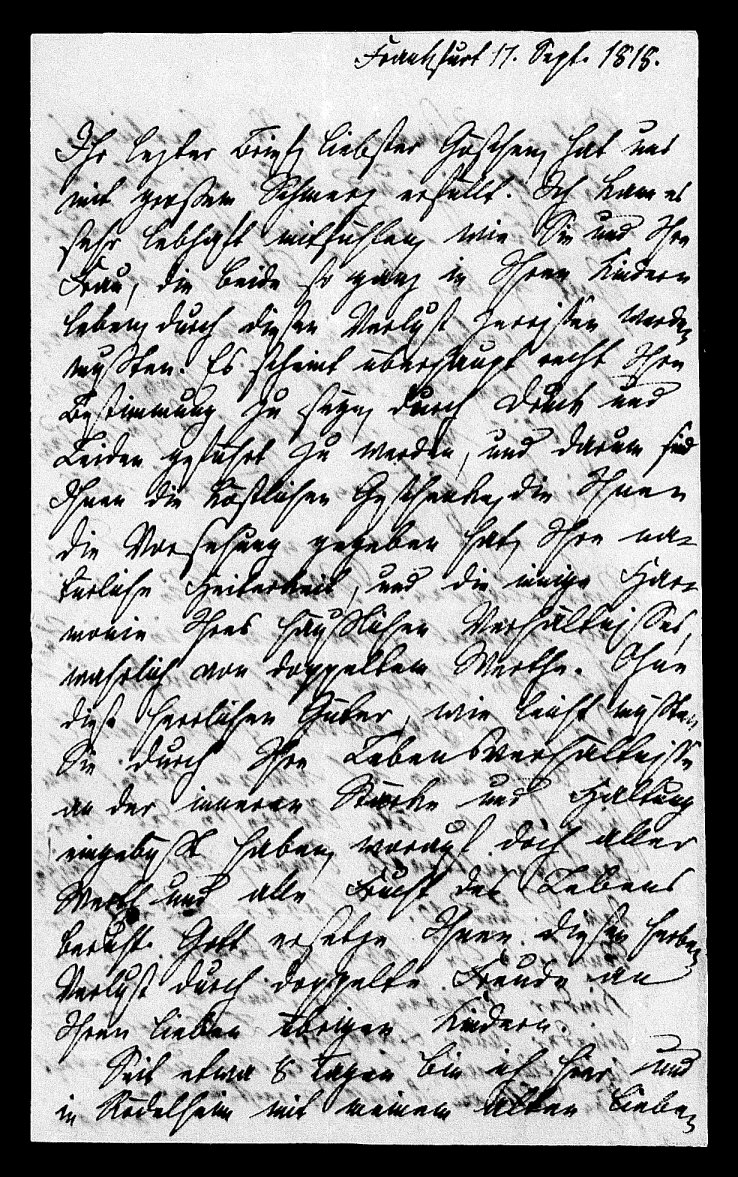 Frankfurt 17. Sept. 1818.
Ihr letzter Brief, liebster Göschen, hat uns
mit großem Schmerz erfüllt. Ich kann es
sehr lebhaft mitfühlen, wie Sie und Ihre
Frau, die beide so ganz in Ihren Kindern
leben, durch diesen Verlust zerrissen werden
mußten. Es scheint überhaupt recht Ihre
Bestimmung zu seyn, durch Druck und
Leiden geführt zu werden, und darum sind
Ihnen die köstlichen Geschenke, die Ihnen
die Vorsehung gegeben hat, Ihre na-
türliche Heiterkeit, und die innige Har-
monie Ihres häuslichen Verhältnisses,
wahrlich von doppeltem Werthe. Ohne
diese herrlichen Güter, wie leicht müßten
Sie durch Ihre Lebensverhältnisse
an der inneren Stärke und Haltung
eingebüßt haben, worauf doch aller
Werth und alle Frucht des Lebens
beruht. Gott ersetze Ihnen diesen herben
Verlust durch doppelte Freude an
Ihren lieben übrigen Kindern.
Seit etwa 8 Tagen bin ich hier und
in Rödelheim mit meinem alten lieben